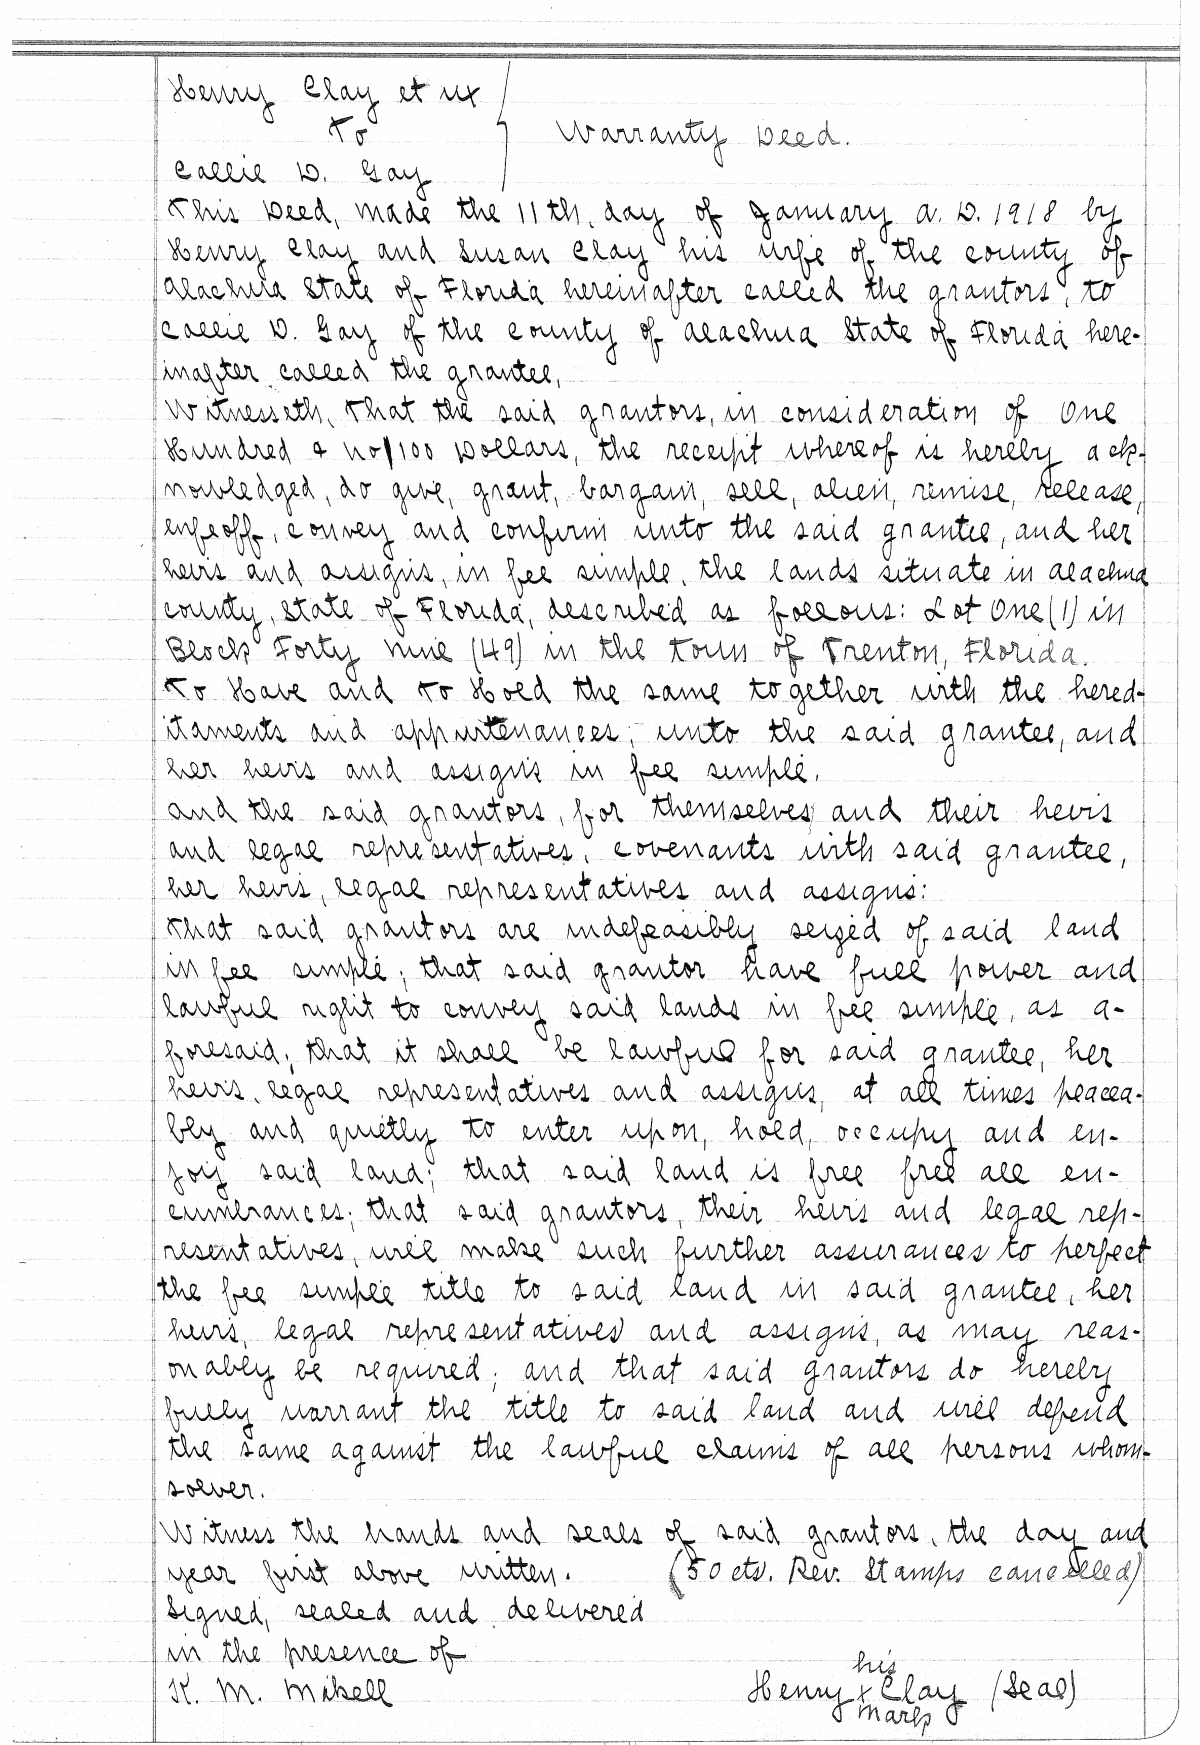 Henry Clay et ux
To
Warranty Deed.
Callie D. Gay
This Deed, made the 11th, day of January A. D. 1918 by
Henry Clay and Susan Clay his wife of the county of
Alachua State of Florida hereinafter called the grantors, to
Callie D. Gay of the County of Alachua State of Florida here-
inafter called the grantee,
Witnesseth, That the said grantors, in consideration of One
Hundred & no/100 Dollars, the receipt whereof is hereby ack-
nowledged, do give, grant, bargain, sell, alien, remise, release,
enfeoff, convey and confirm unto the said grantee, and her
heirs and assigns, in fee simple, the lands situate in Alachua
county, State of Florida, described as follows: Lot One (1) in
Block Forty nine (49) in the Town of Trenton, Florida.
To Have and To Hold the same together with the hered-
itaments and appurtenances, unto the said grantee, and
her heirs and assigns in fee simple.
And the said grantors, for themselves and their heirs
and legal representatives, covenants with said grantee,
her heirs, legal representatives and assigns:
That said grantors are indefeasibly seized of said land
in fee simple; that said grantor have full power and
lawful right to convey said lands in fee simple, as a-
foresaid; that it shall be lawful for said grantee, her
heirs, legal representatives and assigns, at all times peacea-
bly and quietly to enter upon, hold, occupy and en-
joy said land; that said land is free free all en-
cumbrances; that said grantors, their heirs and legal rep-
resentatives, will make such further assurances to perfect
the fee simple title to said land in said grantee, her
heirs, legal representatives and assigns, as may reas-
onably be required; and that said grantors do hereby
fully warrant the title to said land and will defend
the same against the lawful claims of all persons whom-
soever.
Witness the hands and seals of said grantors, the day and
year first above written. (50 cts. Rev. Stamps cancelled)
Signed, sealed and delivered
in the presence of
his
K. M. Mikell Henry x Clay (Seal)
mark